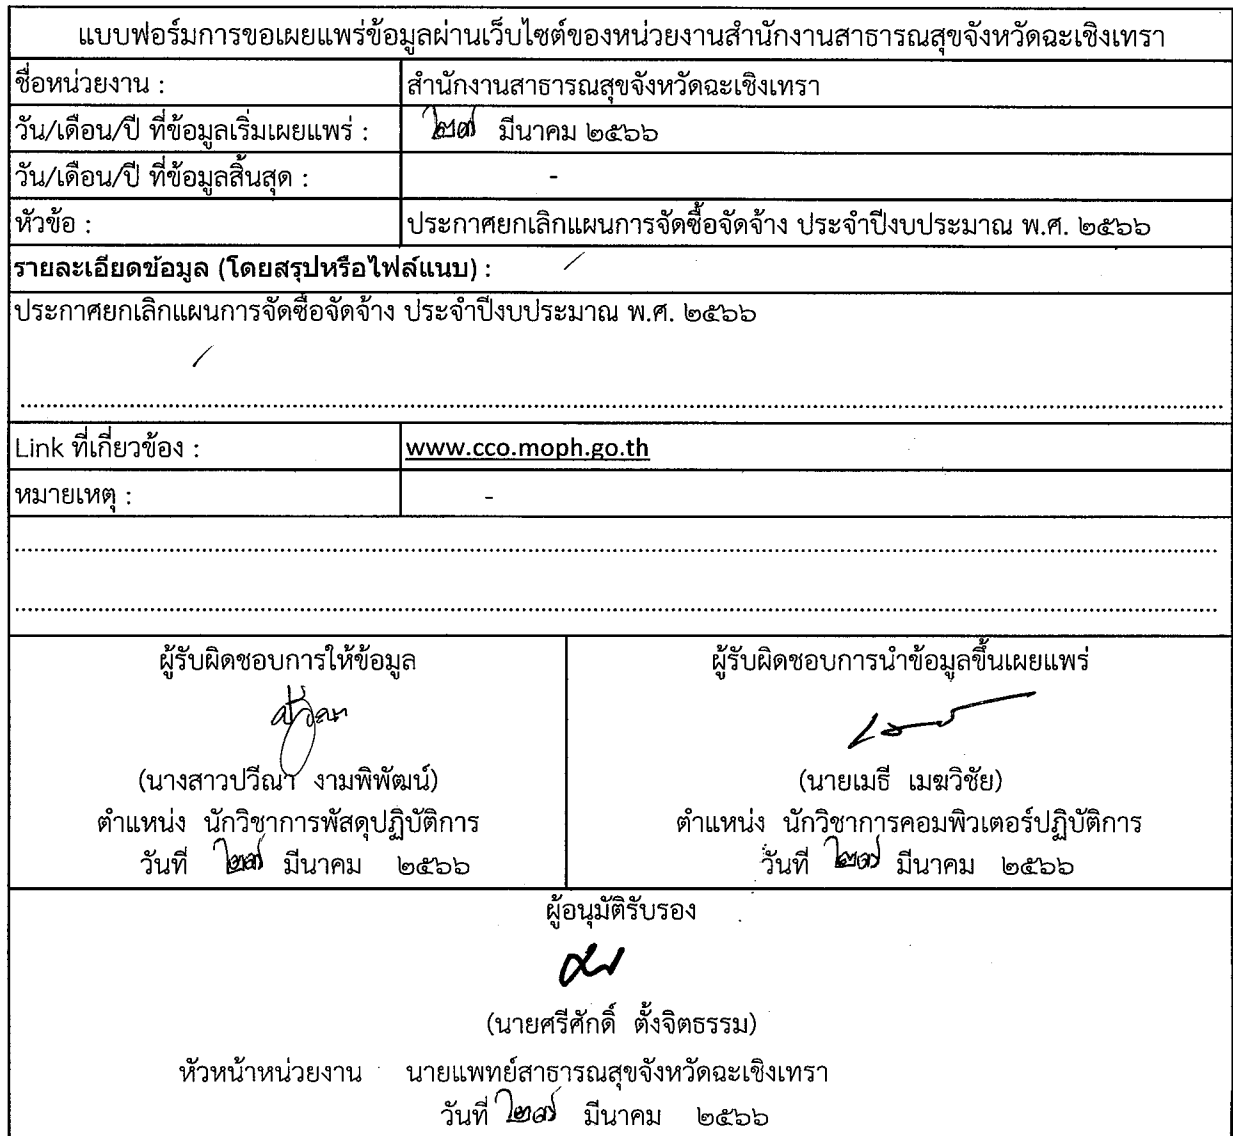 แบบฟอร์มการขอเผยแพร่ข้อมูลผ่านเว็บไซต์ของหน่วยงานสำนักงานสาธารณสุขจังหวัดฉะเชิงเทรา
ชื่อหน่วยงาน : สำนักงานสาธารณสุขจังหวัดฉะเชิงเทรา
วัน/เดือน/ปี ที่ข้อมูลเริ่มเผยแพร่ : ๒๗ มีนาคม ๒๕๖๖
วัน/เดือน/ปี ที่ข้อมูลสิ้นสุด : -
หัวข้อ : ประกาศยกเลิกแผนการจัดซื้อจัดจ้าง ประจำปีงบประมาณ พ.ศ. ๒๕๖๖
รายละเอียดข้อมูล (โดยสรุปหรือไฟล์แนบ) :
ประกาศยกเลิกแผนการจัดซื้อจัดจ้าง ประจำปีงบประมาณ พ.ศ. ๒๕๖๖
Link ที่เกี่ยวข้อง : www.cco.moph.go.th
หมายเหตุ : -
ผู้รับผิดชอบการให้ข้อมูล
(นางสาวปวีณา งามพิพัฒน์)
ตำแหน่ง นักวิชาการพัสดุปฏิบัติการ
วันที่ ๒๗ มีนาคม ๒๕๖๖
ผู้รับผิดชอบการนำข้อมูลขึ้นเผยแพร่
(นายเมธี เมฆวิชัย)
ตำแหน่ง นักวิชาการคอมพิวเตอร์ปฏิบัติการ
วันที่ ๒๗ มีนาคม ๒๕๖๖
ผู้อนุมัติรับรอง
(นายศรีศักดิ์ ตั้งจิตธรรม)
หัวหน้าหน่วยงาน นายแพทย์สาธารณสุขจังหวัดฉะเชิงเทรา
วันที่ ๒๗ มีนาคม ๒๕๖๖